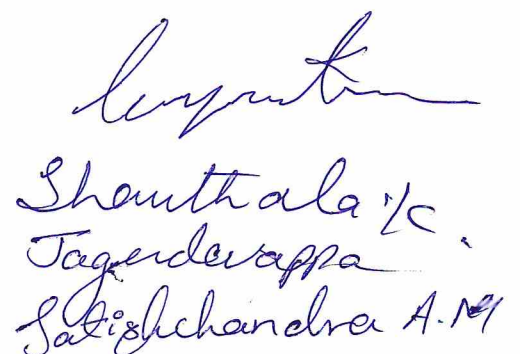 Shanthala K.
Jagendevappa
Satishchandra A.M